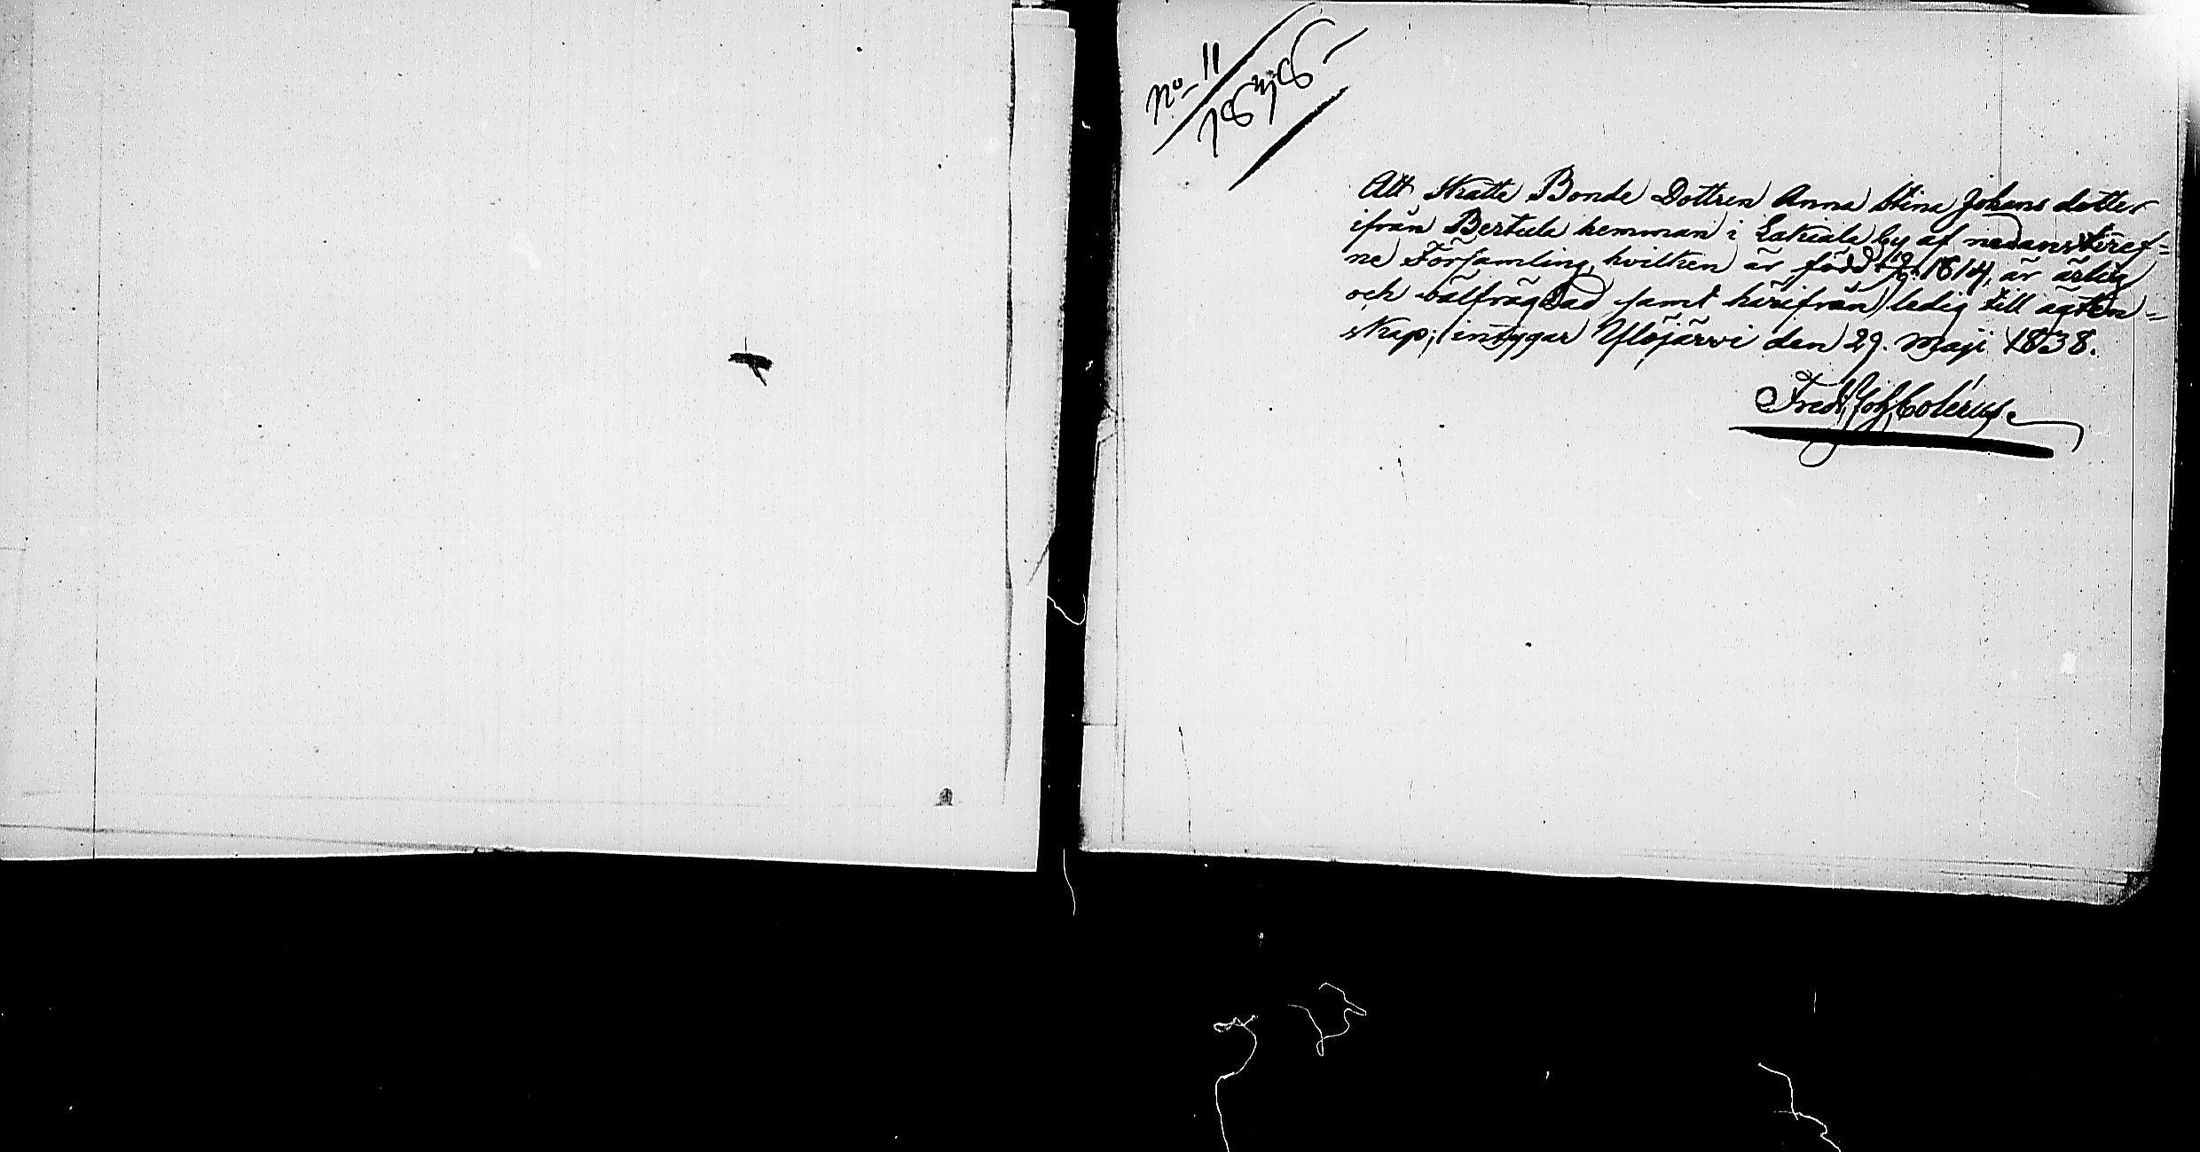 No 11
18 4/6 38
Att Skatte Bonde Dottren Anna Stina Johans dotter
ifrån Bertula hemman i Lakiala by af nedanskref=
ne Församling, hvilken är född 1814, är ärlig
och välfrägdad samt härifrån ledig till ägten=
skap; intygar Ylöjärvi den 29. Maji 1838.
Fredr. Joh.